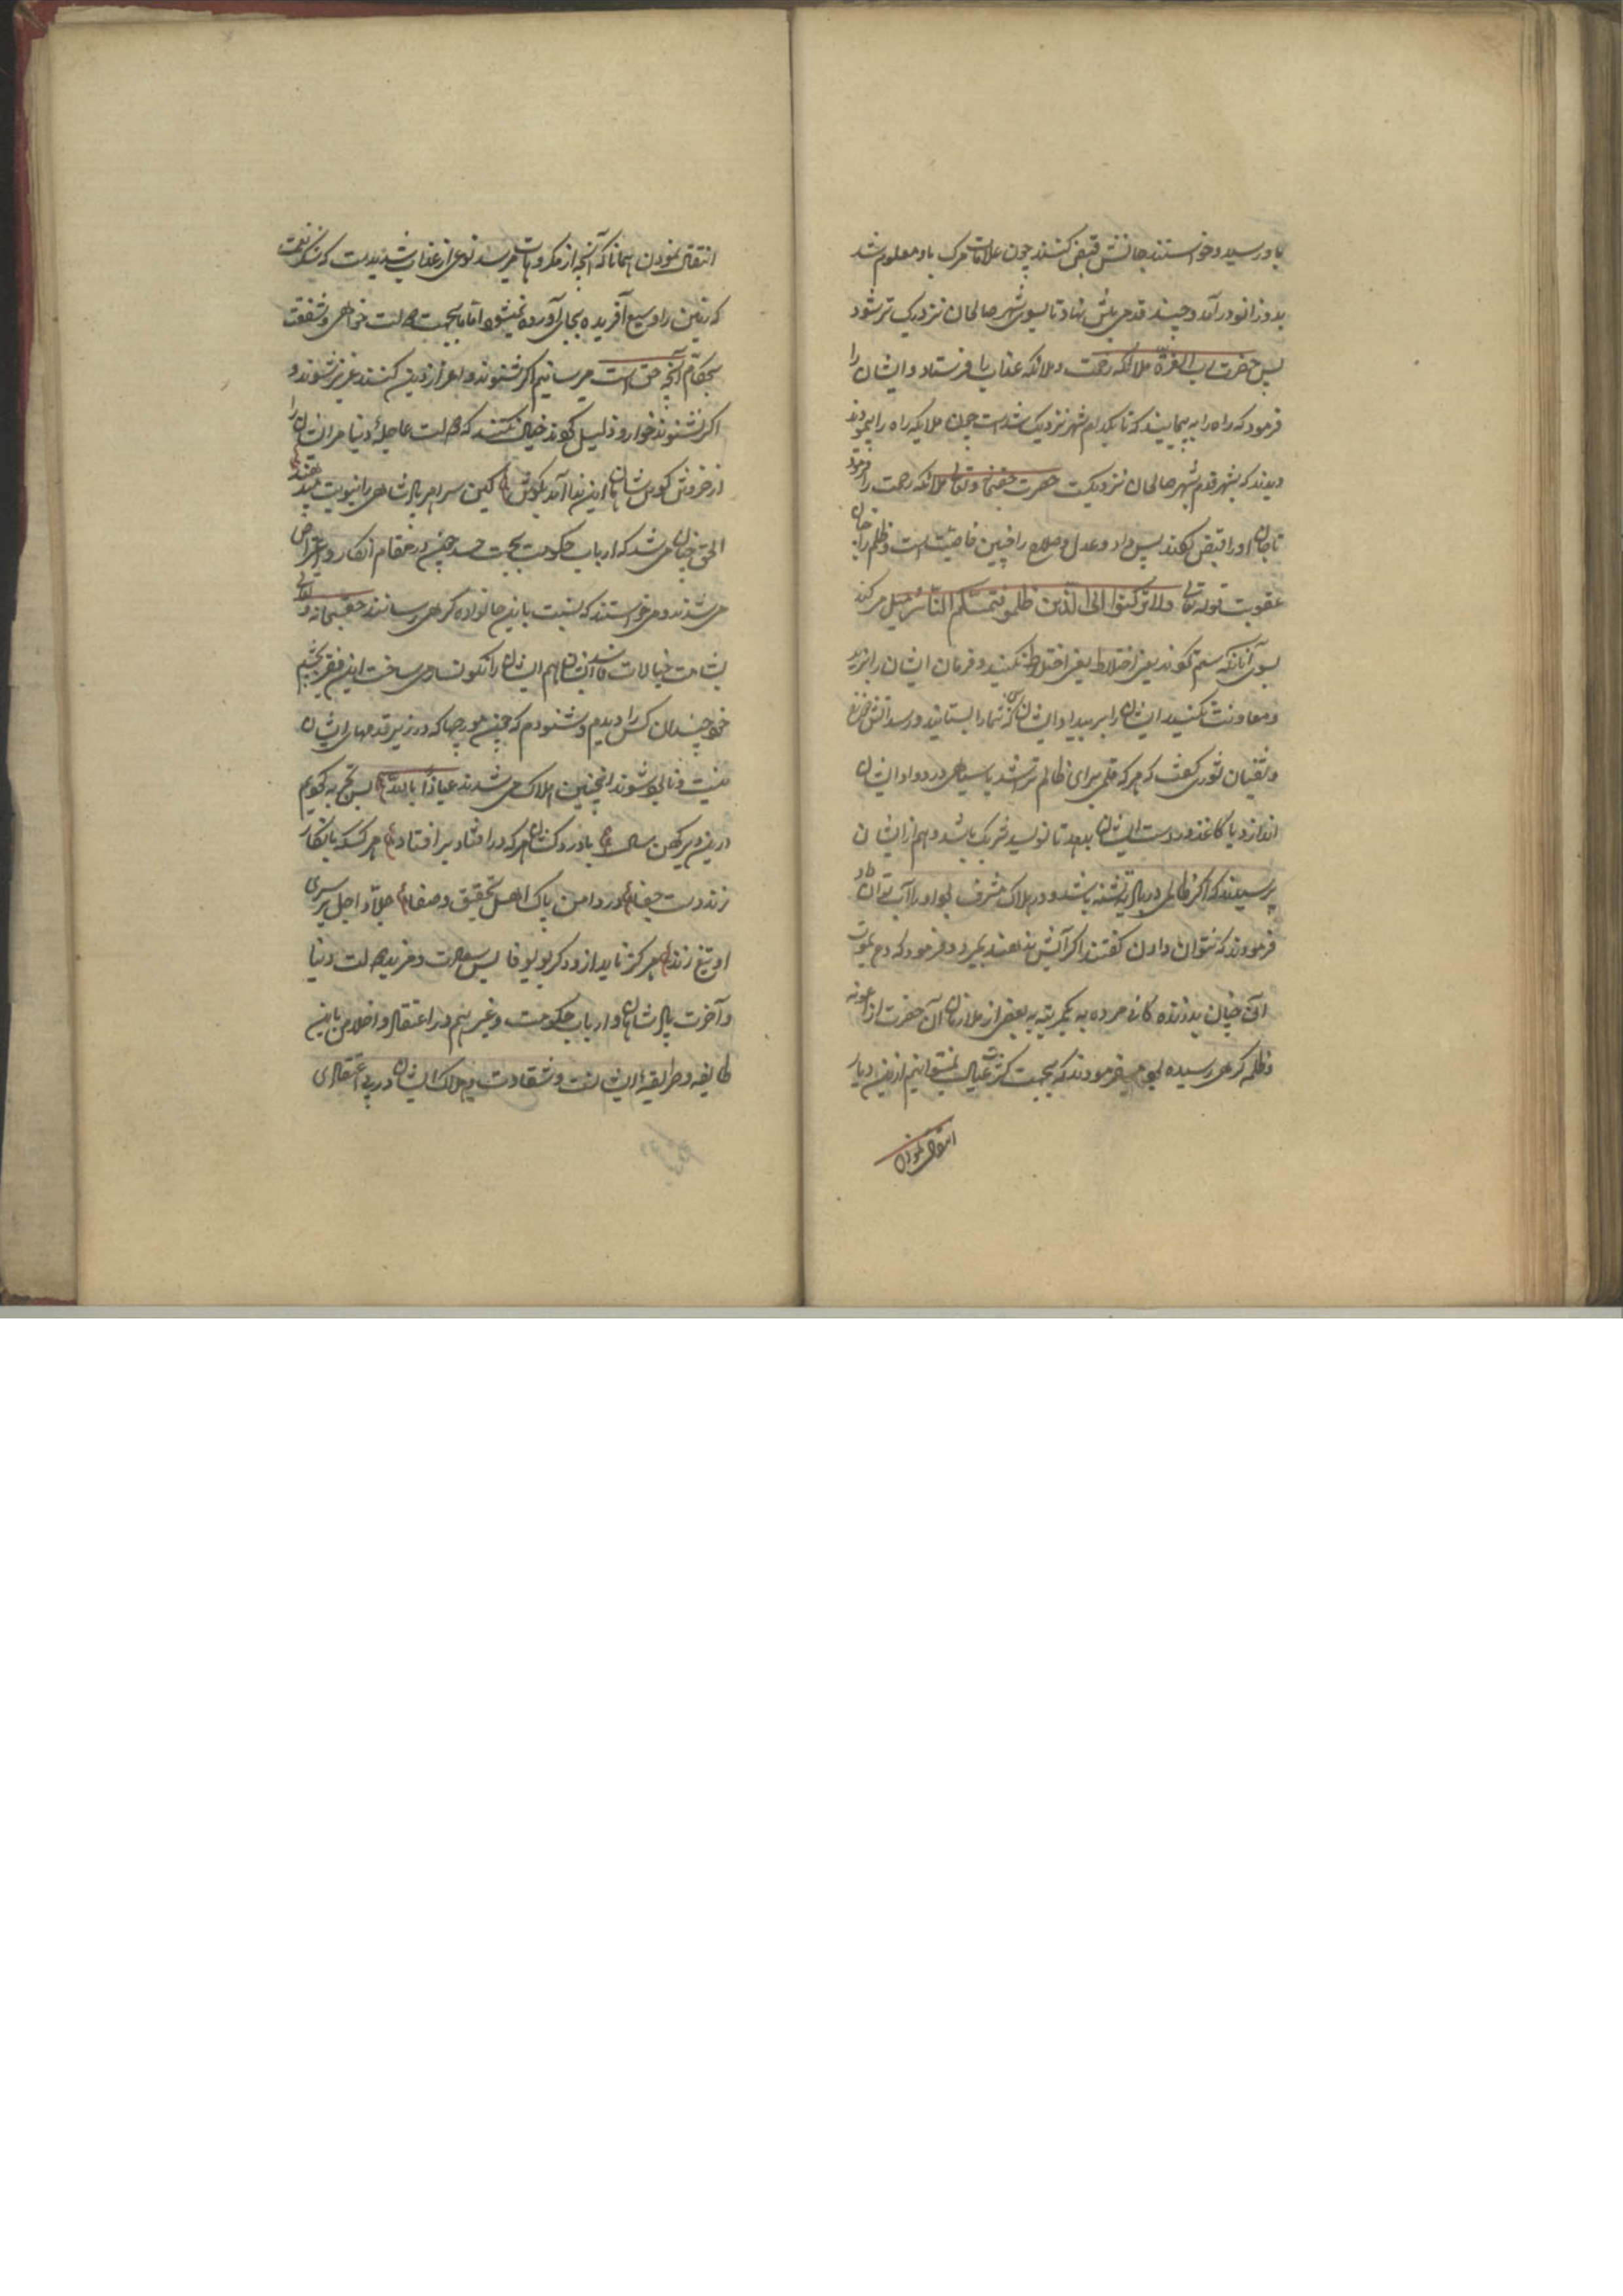 باو رسید و خواستند جانش قبض کنند چون علامات مرک باو معلوم شد
بدو زانو درآمد و چند قدمی پیش نهاد تا بسوی شهر صالحان نزدیک تر شود
پس حضرت رب العزة ملائکه رحمت و ملائکه عذاب را فرستاد و ایشان را
فرمود که راه را به پیمایند که تا بکدام شهر نزدیک شده است چون ملایکه راه را پیمودند
دیدند که بشهر قدم بشهر صالحان نزدیکست حضرت حقسبحانه و تعالی ملائکه رحمت را فرمود
تا جان او را قبض بکنند پس داد و عدل و صلاح را چنین خاصیت است و ظلم را چنان
عقوبت قوله تعالی ولا ترکنوا الی الذین ظلموا فتمسکم النار میل مکنید
بسوی آنانکه ستم کردند یعنی اختلاط نکنید و فرمان ایشان را نبرید
و معاونت مکنید ایشان را بر بیداد ایشان که شما را بستانید و رسد آتش دوزخ
و سفیان ثوری گفت که هر که قلمی برای ظالم تراشد یا سیاهی در دوات ایشان
اندازد یا کاغذ در دست ایشان بدهد تا نویسد شریک باشد و هم از ایشان
پرسیدند که اگر ظالمی در بادیه تشنه باشد و در هلاک مشرف بود او را آب توان داد
فرمودند که نتوان دادن گفتند اگر آبش ندهند بمیرد فرمود که دع یموت
آن چنان بد زنده کانی مرده به یکمرتبه به بعضی از ملازمان آن حضرت از عونه
و ظلمه کرهی رسیده بود میفرمودند که بجهت کثرت عیال نمیتوانیم ازین دیار
انتقال نمودن
انتقال نمودن همانا که آنچه از مکروهات میرسد نوعی از عذاب شدیدست که شکر نعمت
که زمین را وسیع آفریده بجای آورده نمیشود اما ما بجهت دولت خواهی و شفقت
بحکام آنچه حق است میرسانیم اگر شنوند و اعزاز دین کنند عزیز شوند و
اگر نشنوند خوار و ذلیل کردند خیال نکنند که دولت عاجلۀ دنیا مر ایشان را
از خروش کوس شاهان این ندا آمد بکوش کین سرای پادشاهی را نیوبت میدهند
الحق چنان می شد که ارباب حکومت بجهت حسد چون در مقام انکار و اعتراض
می شدند و میخواستند که نسبت باین خانواده کرهی رسانند حقسبحانه و تعالی
بشامت خیالات فاسد ایشان هم ایشان را نکونسار می ساخت این فقیر بچشم
خود چندان کس را دیدیم و شنودم که همچون مورچها که در زیر قدمهای ایشان
نیست و نابود شوند اینچنین هلاک می شدند عیاذا بالله بس تجربه کردیم
درین دیر کهن سال با دردکشان هر که در افتاد برافتاد هر کسکه بانکار
زند دست جفا در دامن پاک اهل تحقیق و صفا جلاد اجل بر سری
او تیغ زند هرکز ناید ازو دکر بوی وفا پس سعادت و مزید دولت دنیا
و آخرت پادشاهان و ارباب حکومت و غیرهم در اعتقاد و اخلاص باین
طایفه و طریقۀ ایشانست و شقاوت و هلاک ایشان در بی اعتقادی